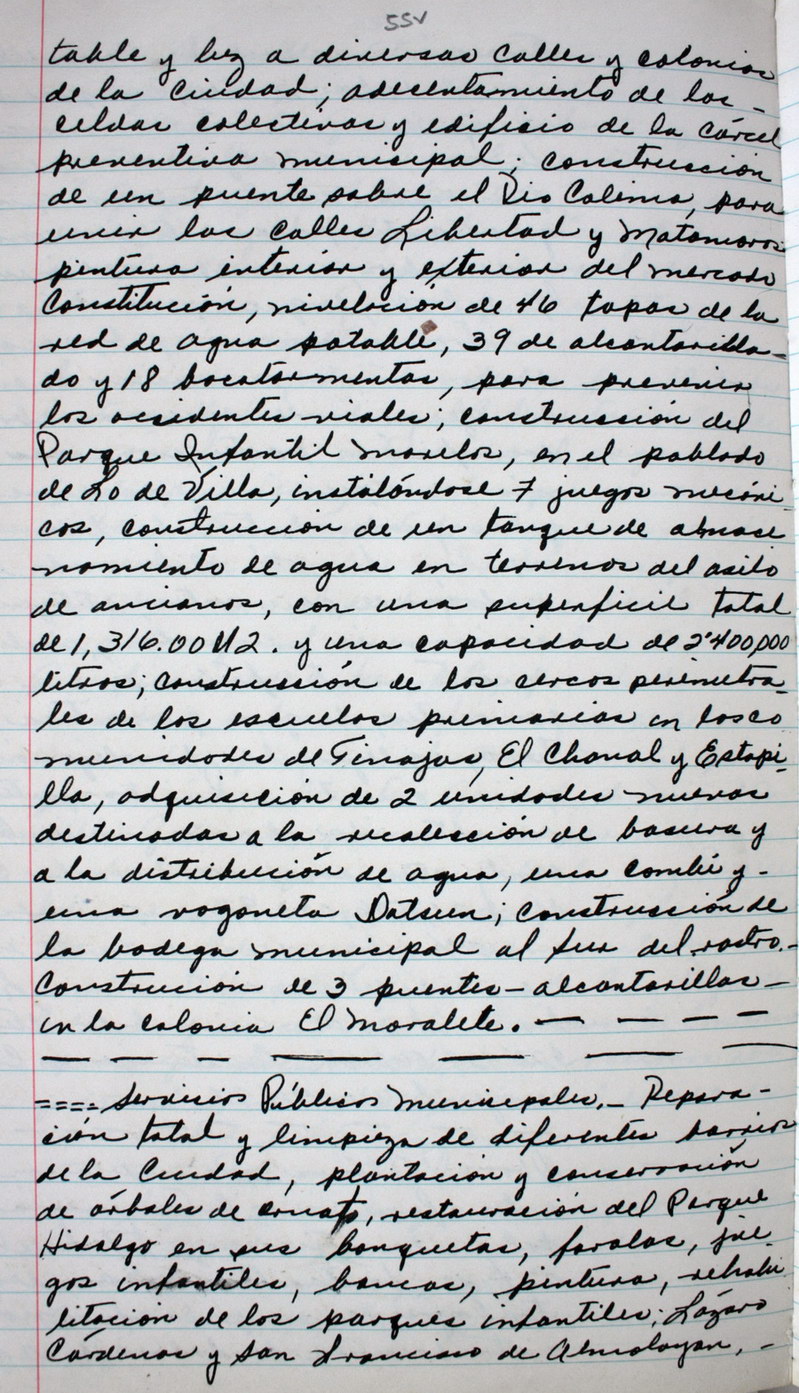 55v
table y luz a diversas calles y colonias
de la Ciudad; adecentamiento de las -
celdas colectivas y edificio de la Cárcel
preventiva municipal; construcción
de un puente sobre el Río Colima, para
unir las calles Libertad y Matamoros
pintura interior y exterior del mercado
Constitución, nivelación de 46 tapas de la
red de agua potable, 39 de alcantarilla-
do y 18 bocatormentas, para prevenir
los accidentes viales; construcción del
Parque Infantil Morelos, en el poblado
de Lo de Villa, instalándose 7 juegos mecáni-
cos, construcción de un tanque de almace
namiento de agua en terrenos del asilo
de ancianos, con una superficie total
de 1,316.00 M2. y una capacidad de 2'400,000
litros; construcción de los cercos perimetra-
les de las escuelas primarias en las co
munidades de Tinajas, El Chanal y Estapi-
lla, adquisición de 2 unidades nuevas
destinadas a la recolección de basura y
a la distribución de agua, una combi y -
una vagoneta Datsun; construcción de
la bodega municipal al sur del rastro.-
Construción de 3 puentes - alcantarillas -
en la colonia El Moralete. — — — —
— — — — — — —
==== Servicios Públicos Municipales.- Repara-
ción total y limpieza de diferentes barrios
de la Ciudad, plantación y conservación
de árboles de ornato, restauración del Parque
Hidalgo en sus banquetas, farolas, jue-
gos infantiles, bancas, pintura, rehabi
litación de los parques infantiles; Lázaro
Cárdenas y San Francisco de Almoloyan, -